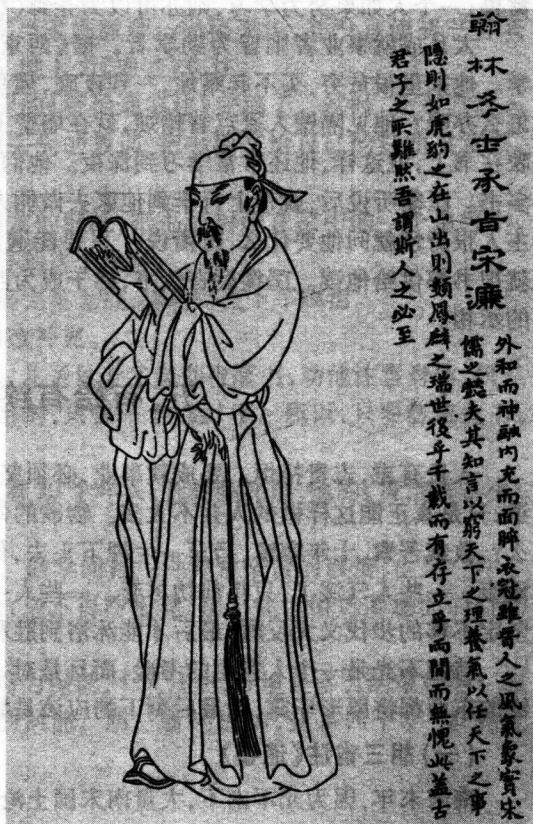 翰林斈士承旨宋濂
外和而神融内充而面睟衣冠雖晋人之風氣象實宋
儒之懿夫其知言以窮天下之理養氣以任天下之事
隱則如虎豹之在山出則類鳳麟之瑞世後乎千載而有存立乎兩間而無愧此盖古
君子之所難然吾謂斯人之必至